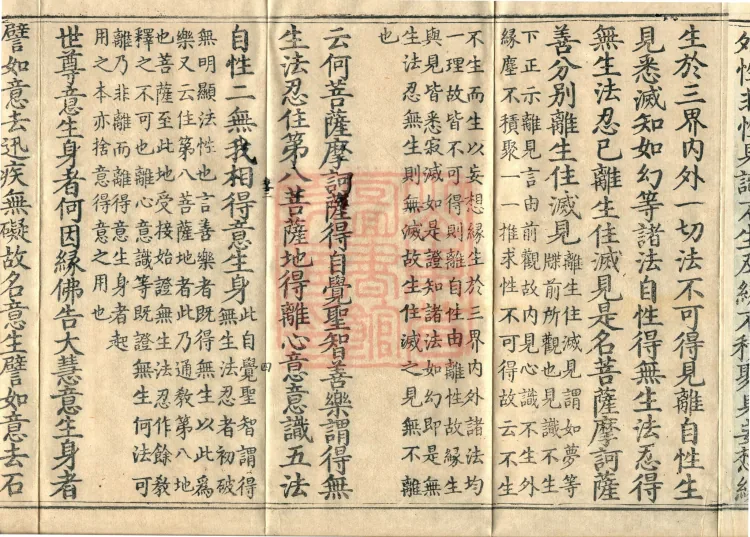 生於三界內外一切法不可得見離自性生
見悉滅知如幻等諸法自性得無生法忍得
無生法忍已離生住滅見是名菩薩摩訶薩
善分別離生住滅見離生住滅見謂如夢等
下正示離見言由前觀故內見心識不生外
緣塵不積聚一一推求性不可得故云不生
不生而生以妄想緣生於三界內外諸法均
一理故皆不可得則離自性由離性故緣生
與見皆悉寂滅如是證知諸法如幻即是無
生法忍無生則無滅故生住滅之見無不離
也
云何菩薩摩訶薩得自覺聖智善樂謂得無
生法忍住第八菩薩地得離心意意識五法
自性二無我相得意生身此自覺聖智謂得
無生法忍者初破
無明顯法性也言善樂者既得無生以此為
樂又云住第八菩薩地者此乃通教第八地
也菩薩至此地受接始證無生法忍作餘教
釋之不可也離心意識等既證無生何法可
離乃非離而離得意生身者起
用之本亦捨意得意之用也
世尊意生身者何因緣佛告大慧意生身者
譬如意去迅疾無礙故名意生譬如意去石